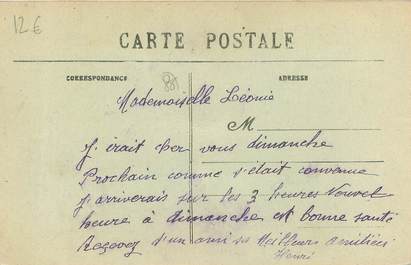 12 €
CARTE POSTALE
CORRESPONDANCE
ADRESSE
Mademoiselle Léonie
M
J'irait cher vous dimanche
Prochain comme s'était convenue
J'arriverais sur les 3 heures Nouvel
heure à dimanche et bonne santé
Reçoez d'un ami ses Meilleurs amitiées
Henri